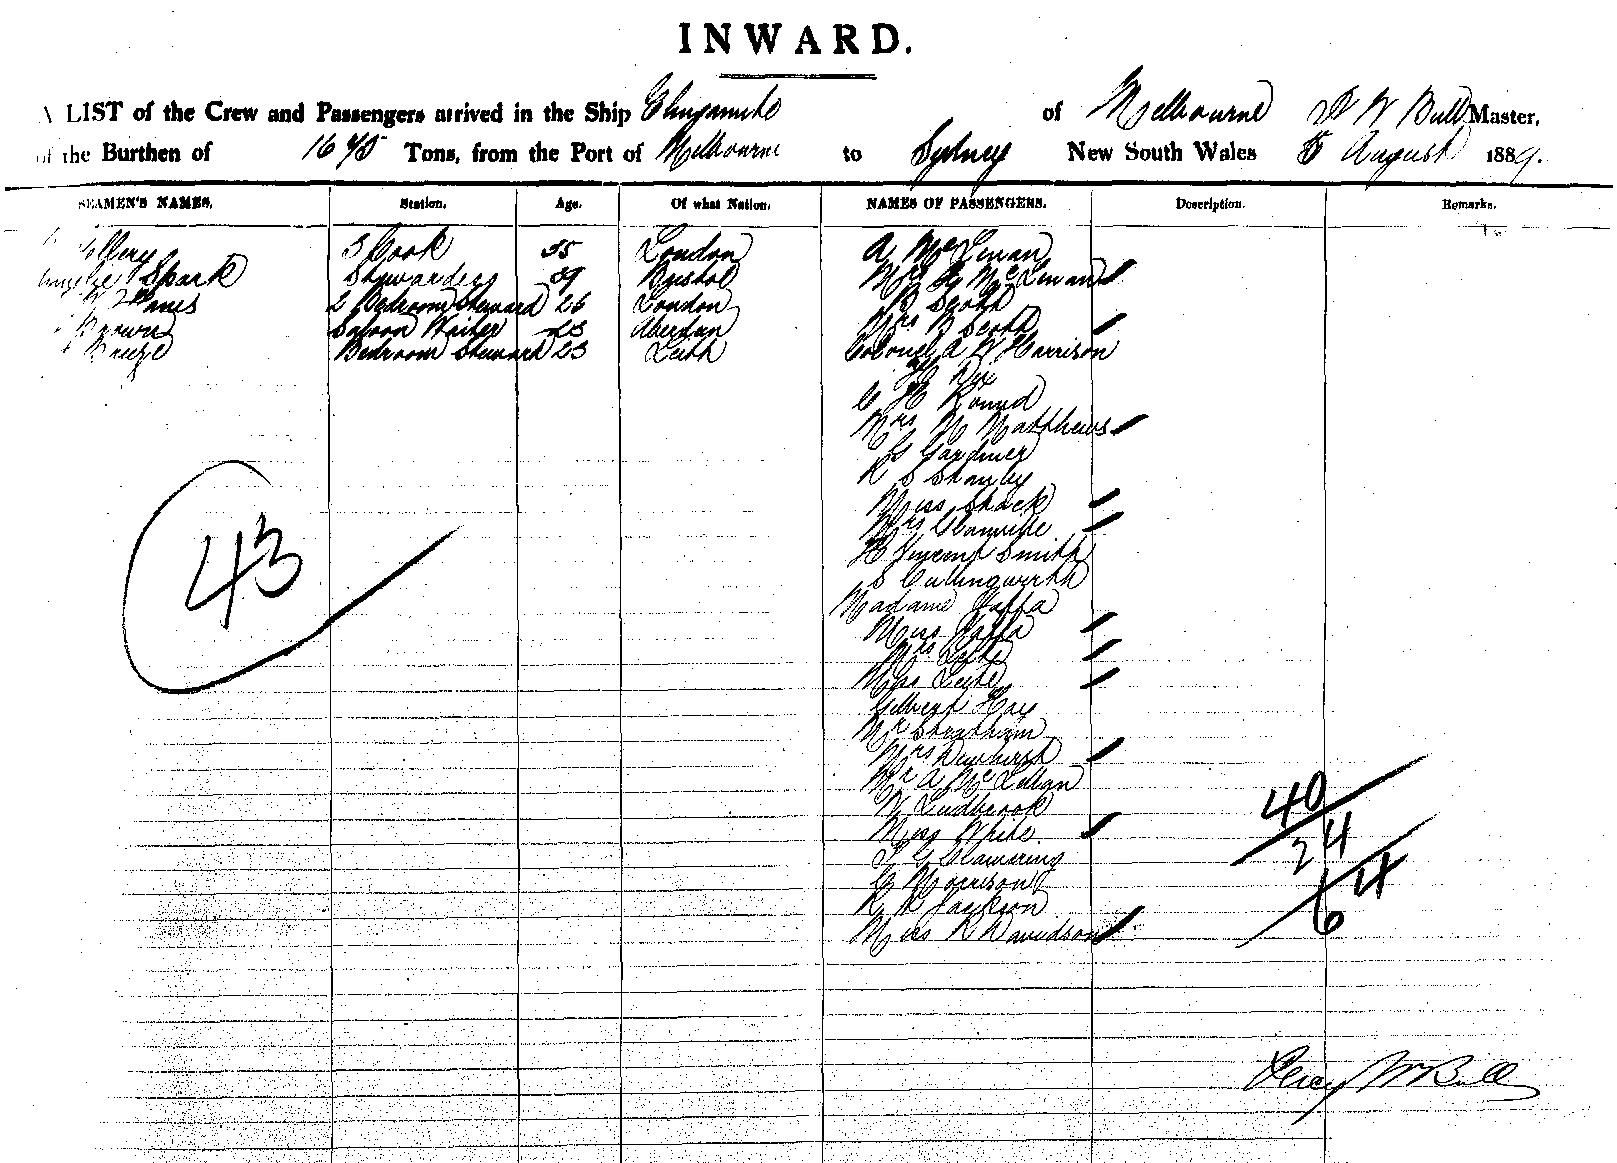 INWARD.
LIST of the Crew and Passengers arrived in the Ship Elingamite of Melbourne P W Bull Master,
of the Burthen of 1675 Tons, from the Port of Melbourne to Sydney New South Wales 5 August 1889.
SEAMEN'S NAMES. Station. Age. Of what Nation. NAMES OF PASSENGERS. Description. Remarks.
3 Cook 35 London A McLennan
Spark Stewardess 39 Bristol Mrs McLennan
2 Bedroom Steward 26 London B Scott
Brown Saloon Waiter 23 Aberdeen Mrs B Scott
Breeze Bedroom Steward 23 Leith Colonel A W Harrison
Dix
C H Round
Mrs M Matthews
Gardiner
R S Stanley
Miss Shack
Mrs Glanville
H Vincent Smith
S Cullingworth
Madame Jaffa
Miss Jaffa
Mrs Leete
Miss Leete
Gilbert Hay
Mr Streatham
Mrs Dewhurst
Mr A McLellan
W Ludbrook
Miss White
Clavering
G Morrison
R R Jackson
Miss R Davidson
43
40
24
4
6
Percy W Bull